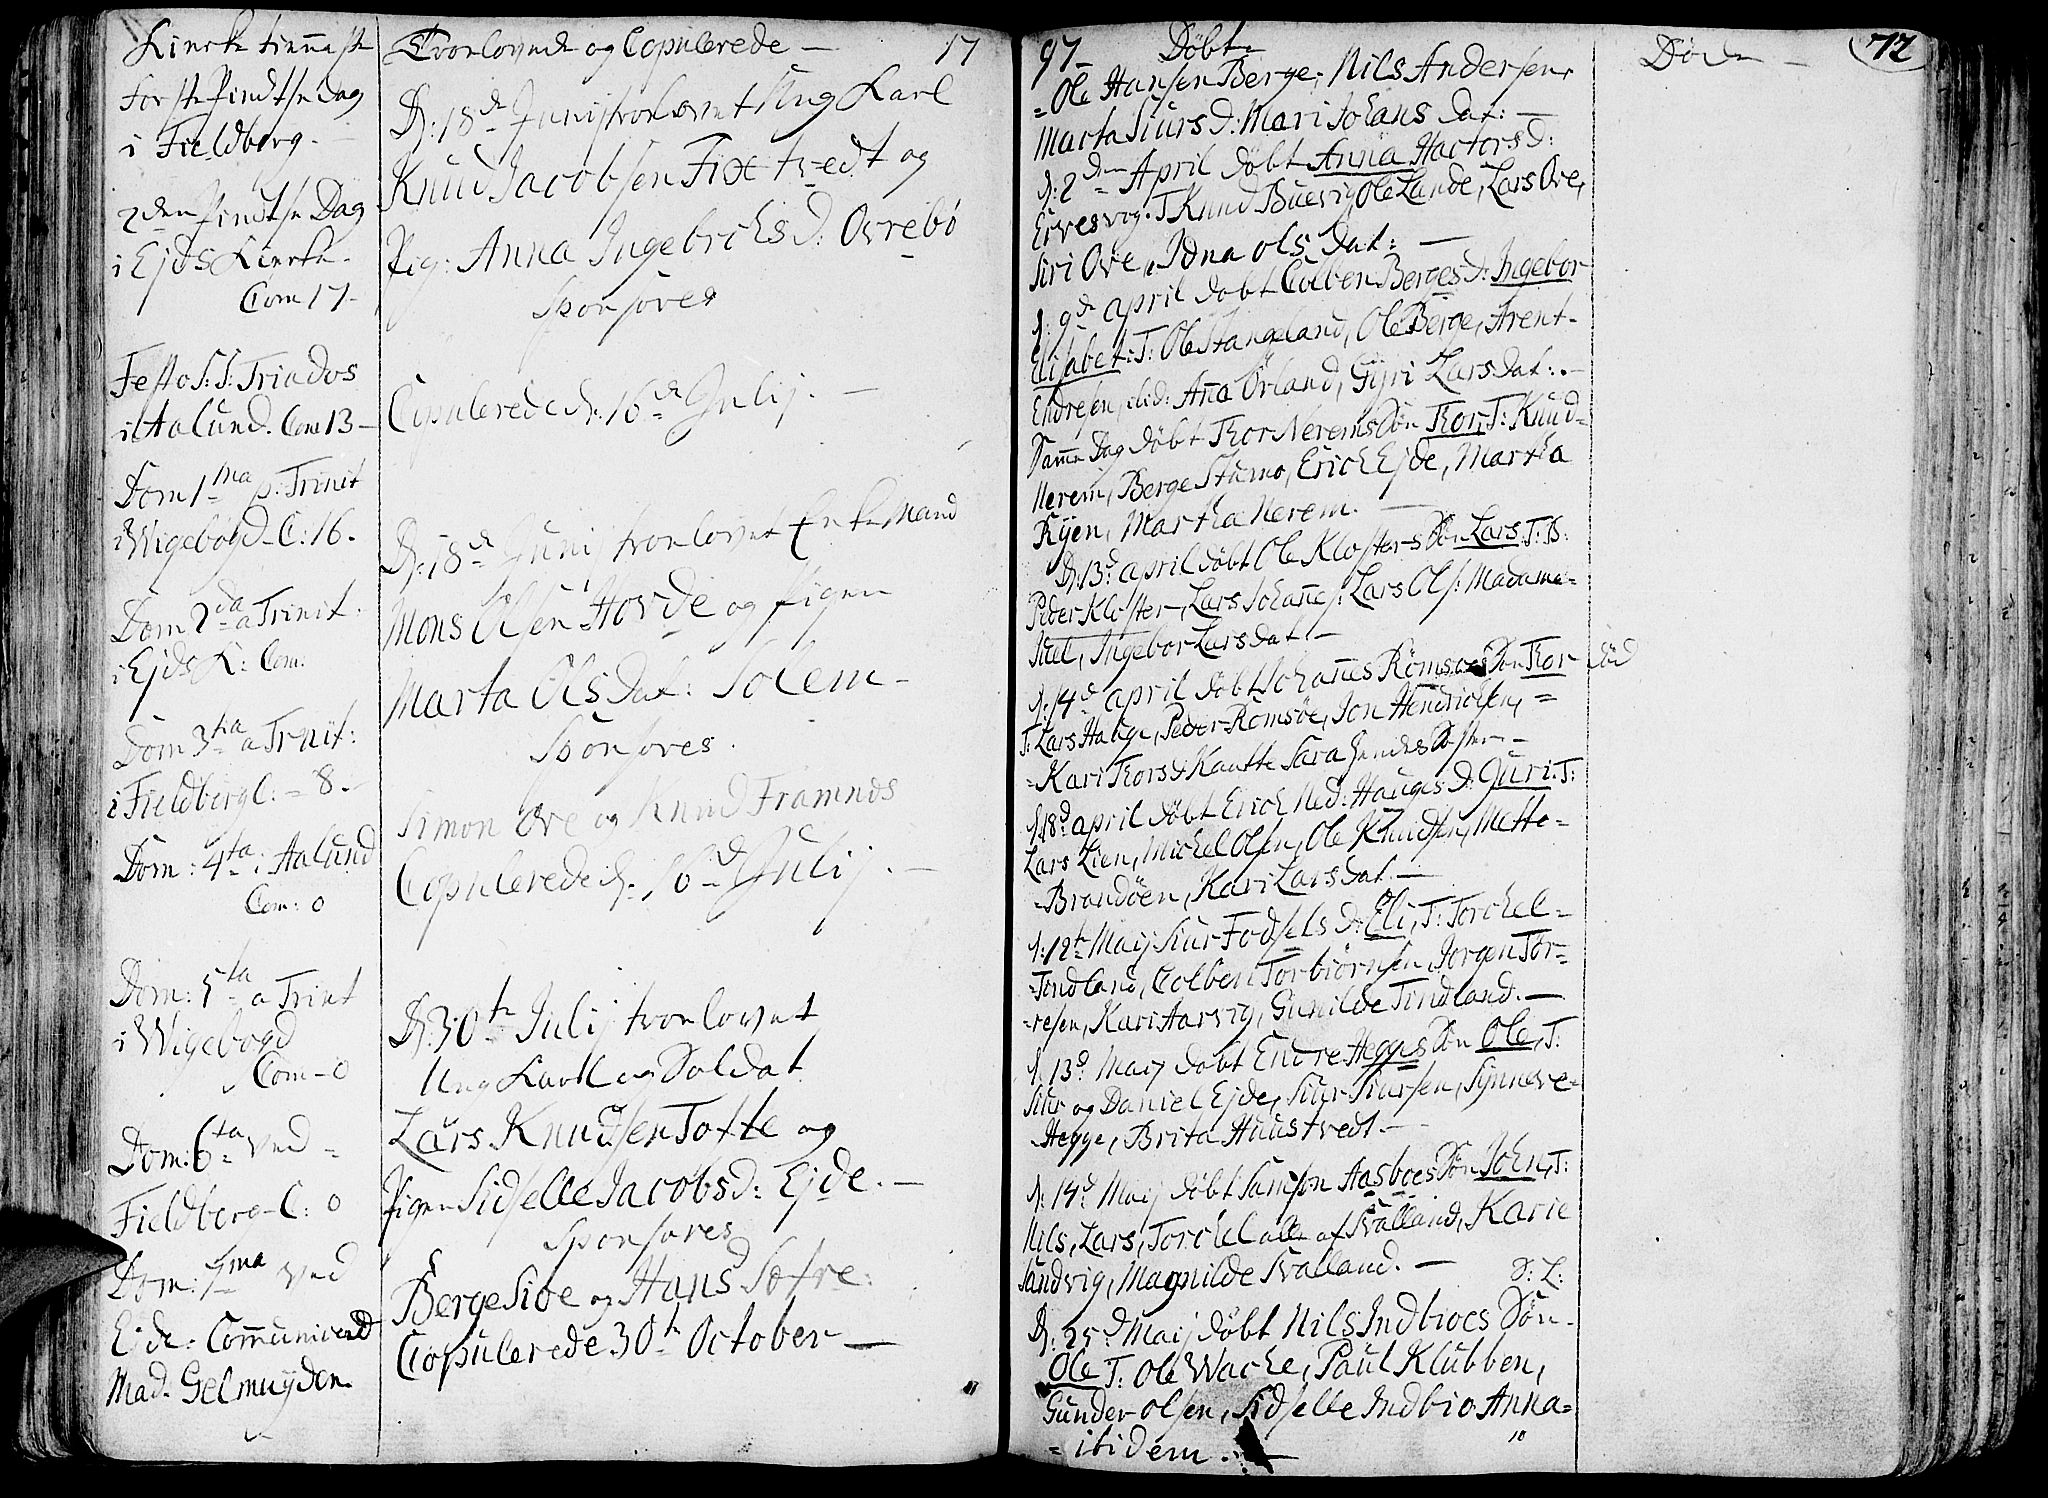 Kircke tienneste
første Pindtse dag
i Fieldberg.
2den Pindtse Dag
i Ejds Kircke.
Com 17-
Festo S: S: Triados
i Aalund. Com 13-
Dom 1ma p: Trinit
i Wigebøyd- C: 16.
Dom 2da a Trinit.
i Ejds K: Com:
Dom 3tia a Trnit:
i Fieldberg C: = 8.
Dom: 4ta i Aalund
Com: 0
Dom: 5ta a Trint
i Wigebøgd
Com-0
Dom: 6ta ved =
Fieldberg- C: 0
Dom: 7ma ved
Ejde: Communicered
Mad. Gelmuyden.
Trovlovede og Copulerede - 17
D: 18de Junij trovlovet Ung Karl
Knud Jacobsen Fixtvedt og
Pig: Anna Ingebrichs d: Ovrebø
Sponsores
Copulerede d: 16de Julij. -
D: 18de Junij trovlovet Enke Mand
Mons Olsen Hovde og Pigen
Marta Ols Dat: Solem-
Sponsores.
Simon Ore og Knud Framnæs
Copulerede d. 16de Julij. -
D: 30te Julij trovlovet
Ung Karll og Soldat
Lars Knudsen Tofte og
Pigen Sidselle Jacobs d: Ejde. -
Sponsores
Berge Sioe og Hans Søfre:
Copulerede 30te October -
97 Døbte
Døde - 72
= Ole Hansen Berge, Nils Andersen,
Marta Siurs d: Mari Johans Dat: -
d: 2den April døbt Anna Hactors d:
Ervesvig. T Knud Buevig Ole Lande, Lars Ore,
Siri Ore, Idna Ols Dat: -
d: 9de April døbt Colben Berges d: Ingebor
Elisabet: T: Ole Stangeland, Ole Berge, Arent-
Endresen, ibid: Anna Ørland, Gyri Lars Dat:. -
Samme Dag døbt Thor Nerems Søn Thor, T: Knud-
Nerem, Berge Stumo, Erich Ejde, Martha
Ryen, Martha Nerem. -
D: 13d April døbt Ole Klosters Søn Lars. T: B:
Peder Kloster, Lars Johannes: Lars Ols: Madame=
Juel, Ingebor Lars Dat -
d: 14de April døbt Johannes Rømsøes Søn Thor død
T: Lars Hauge, Peder Rømsøe, Jon Hendrichsen, =
= Kari Thors d Sara
d: 18de April døbt Erich Ned: Hauges d: Guri. T:
Lars Lien, Michel Olsen, Ole Knudsen, Mette-
- Brandøen, Kari Lars Dat. -
d: 12te Maij Siur Fodsels d: Eli, T: Torchel-
- Tindland, Colben Torbiørnsen, Jørgen Tor-
- resen, Kari Aarvig, Gunilde Tindland. -
d. 13d. Maij døbt Endre Hegges Søn Ole, T:
Siur og Daniel Ejde, Siur Siursen, Synneve-
- Hegge, Brita Huustvedt -
d: 14de Maij døbt Samson Aasboes Søn John, T:
Nils, Lars, Torchel alle af Svalland, Karie
Sandvig, Magnilde Svalland. - S: L:
D: 25de Maij døbt Nils Indbioes Søn-
Ole T: Ole Wacke, Paul Klubben,
Gunder Olsen, Sidselle Indbio Anna=
= ibidem. -